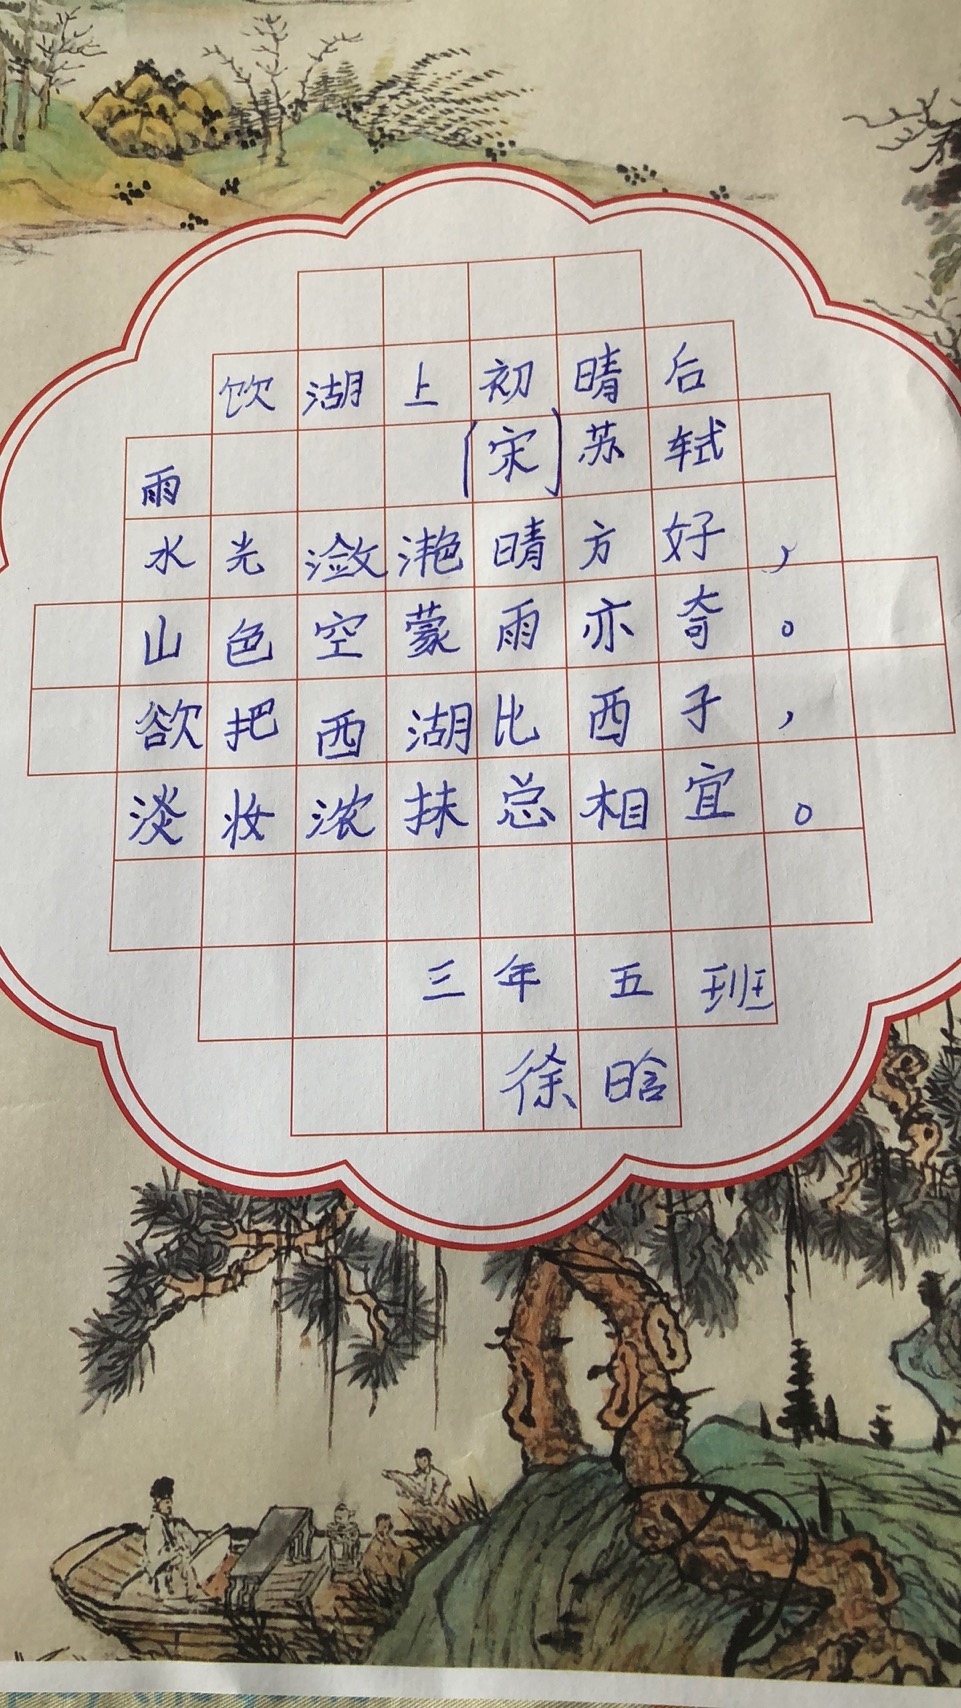 饮湖上初晴后
雨 [宋]苏轼
水光潋滟晴方好，
山色空蒙雨亦奇。
欲把西湖比西子，
淡妆浓抹总相宜。
三年五班
徐晗